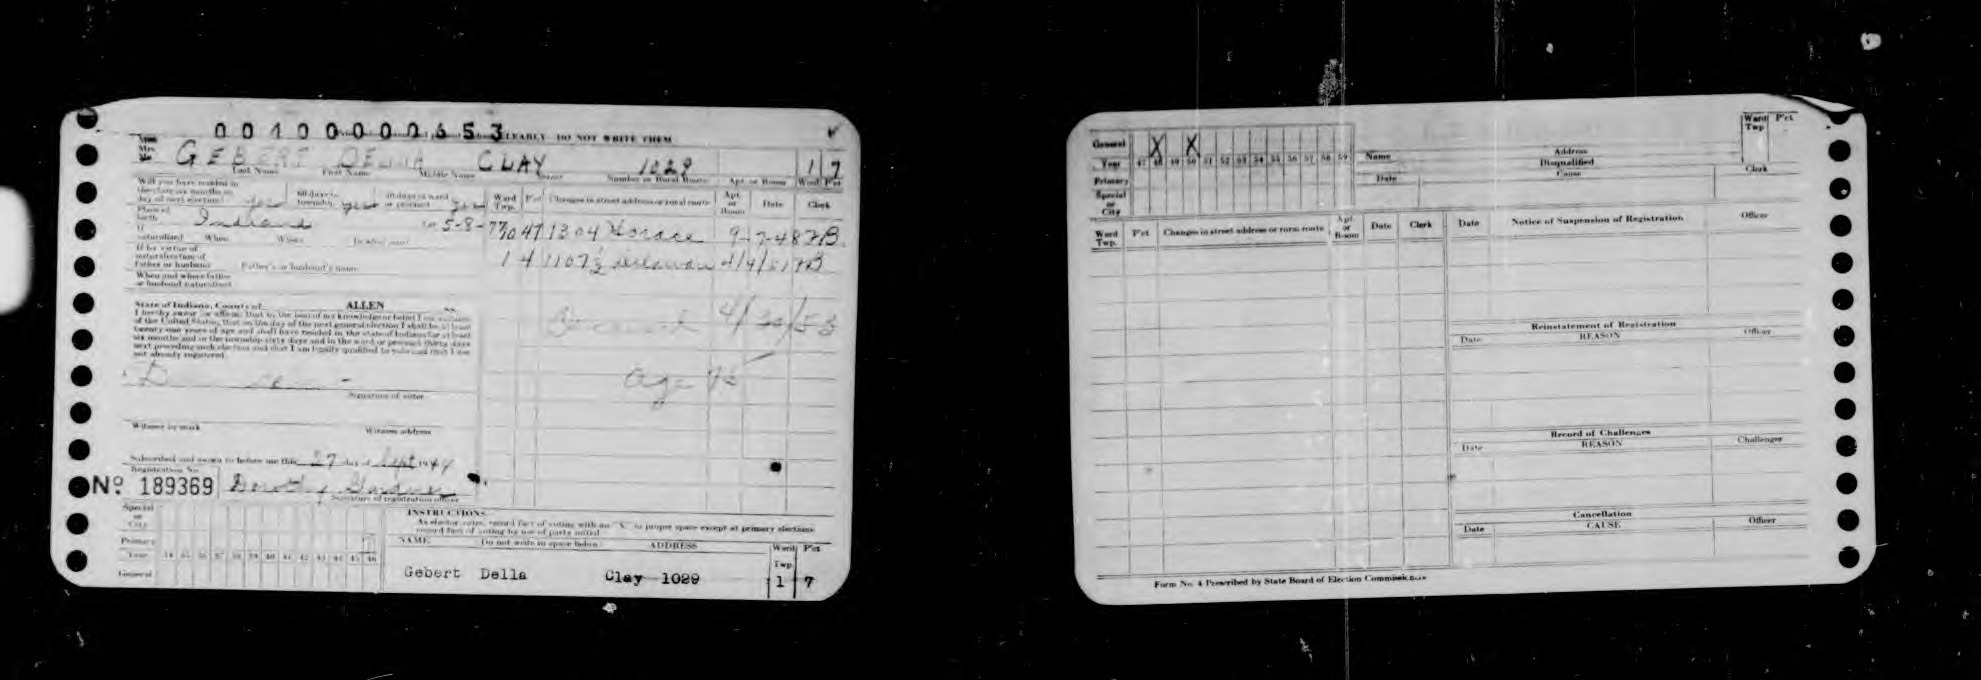 0010000653
CLEARLY DO NOT WRITE THEM
Mrs.
GEBERT DELLA CLAY 1029 1 7
Last Name First Name Middle Name Street Number or Rural Route Apt. or Room Ward P'ct
Will you have resided in the state six months on day of next election? yes 60 days in township yes 30 days in ward or precinct yes
Ward Twp. P'ct Changes in street address or rural route Apt. or Room Date Clerk
Place of birth Indiana 5-8-77
20 47 1304 Horace 9-7-48
If naturalized When Where In what court
1 4 1107½ Delaware 4/4/51
If by virtue of naturalization of father or husband Father's or husband's name
When and where father or husband naturalized
State of Indiana, County of ALLEN
I hereby swear (or affirm) that to the best of my knowledge or belief I am a citizen
of the United States, that on the day of the next general election I shall be at least
twenty-one years of age and shall have resided in the state of Indiana for at least
six months and in the township sixty days and in the ward or precinct thirty days
next preceding such election and that I am legally qualified to vote and that I am
not already registered
Deceased 4/30/53
age 75
Signature of voter
Witness by mark Witness address
Subscribed and sworn to before me this 27 day of Sept 1944
Registration No.
No. 189369 Dorothy Gardner
Signature of registration officer
Special or City
Primary
Year 34 35 36 37 38 39 40 41 42 43 44 45 46
General
INSTRUCTIONS
As elector votes, record fact of voting with an "X" in proper space except at primary elections
record fact of voting by use of party initial
NAME Do not write in space below ADDRESS Ward Twp. P'ct
Gebert Della Clay 1029 1 7
General X X
Year 47 48 49 50 51 52 53 54 55 56 57 58 59
Primary
Special or City
Name Address
Disqualified
Date Cause Clerk
Ward Twp P'ct
Ward Twp. P'ct Changes in street address or rural route Apt. or Room Date Clerk
Date Notice of Suspension of Registration Officer
Reinstatement of Registration
Date REASON Officer
Record of Challenges
Date REASON Challenger
Cancellation
Date CAUSE Officer
Form No. 4 Prescribed by State Board of Election Commissioners